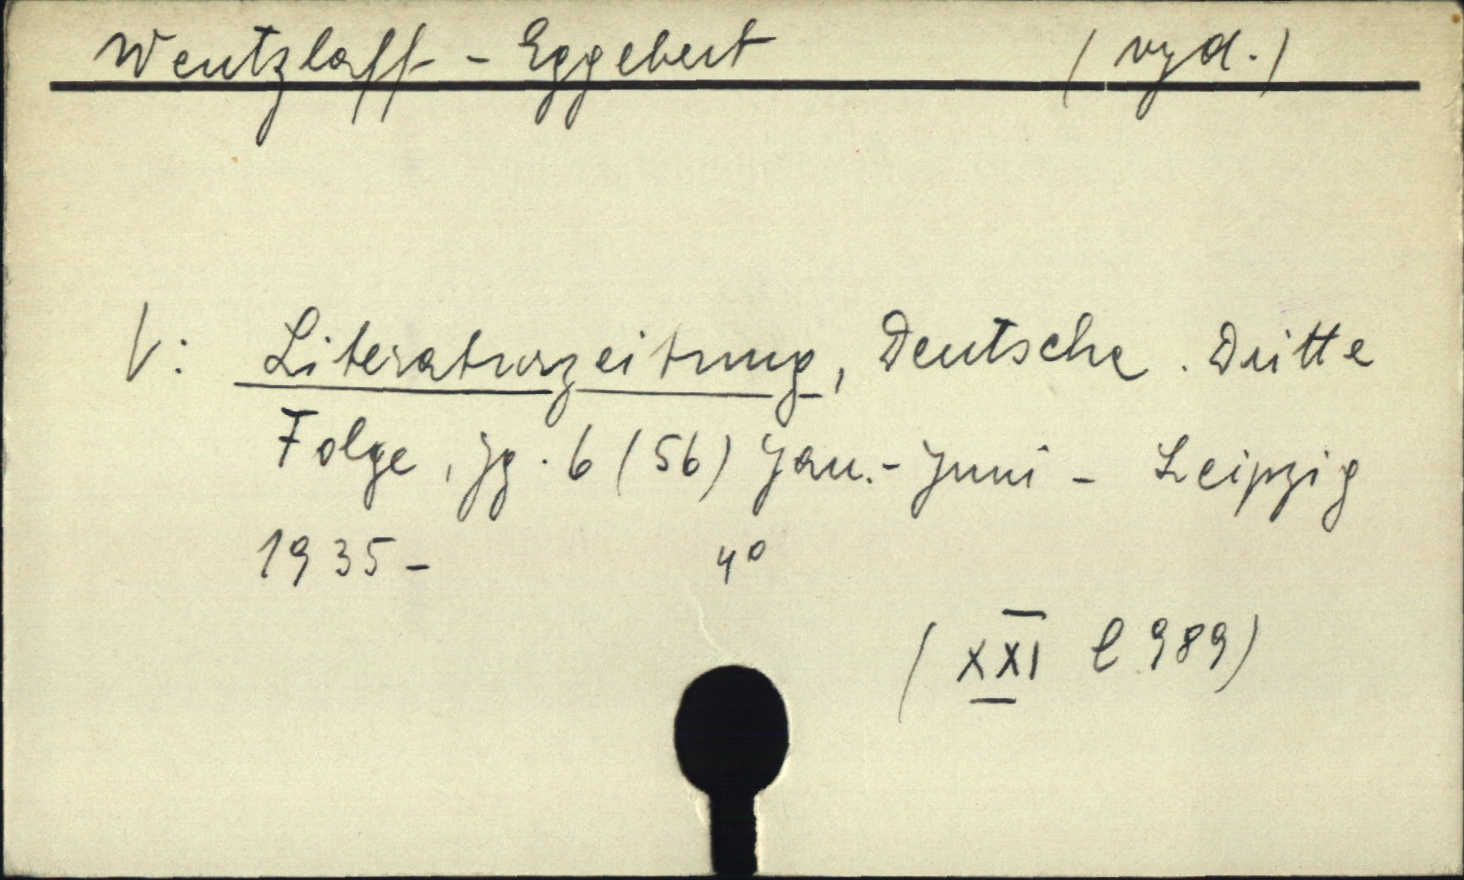 Wentzlaff - Eggebert (vyd.)
V: Literaturzeitung, Deutsche. Dritte
Folge, Jg. 6 (56) Jan.- Juni - Leipzig
1935- 4°
(XXI C 989)